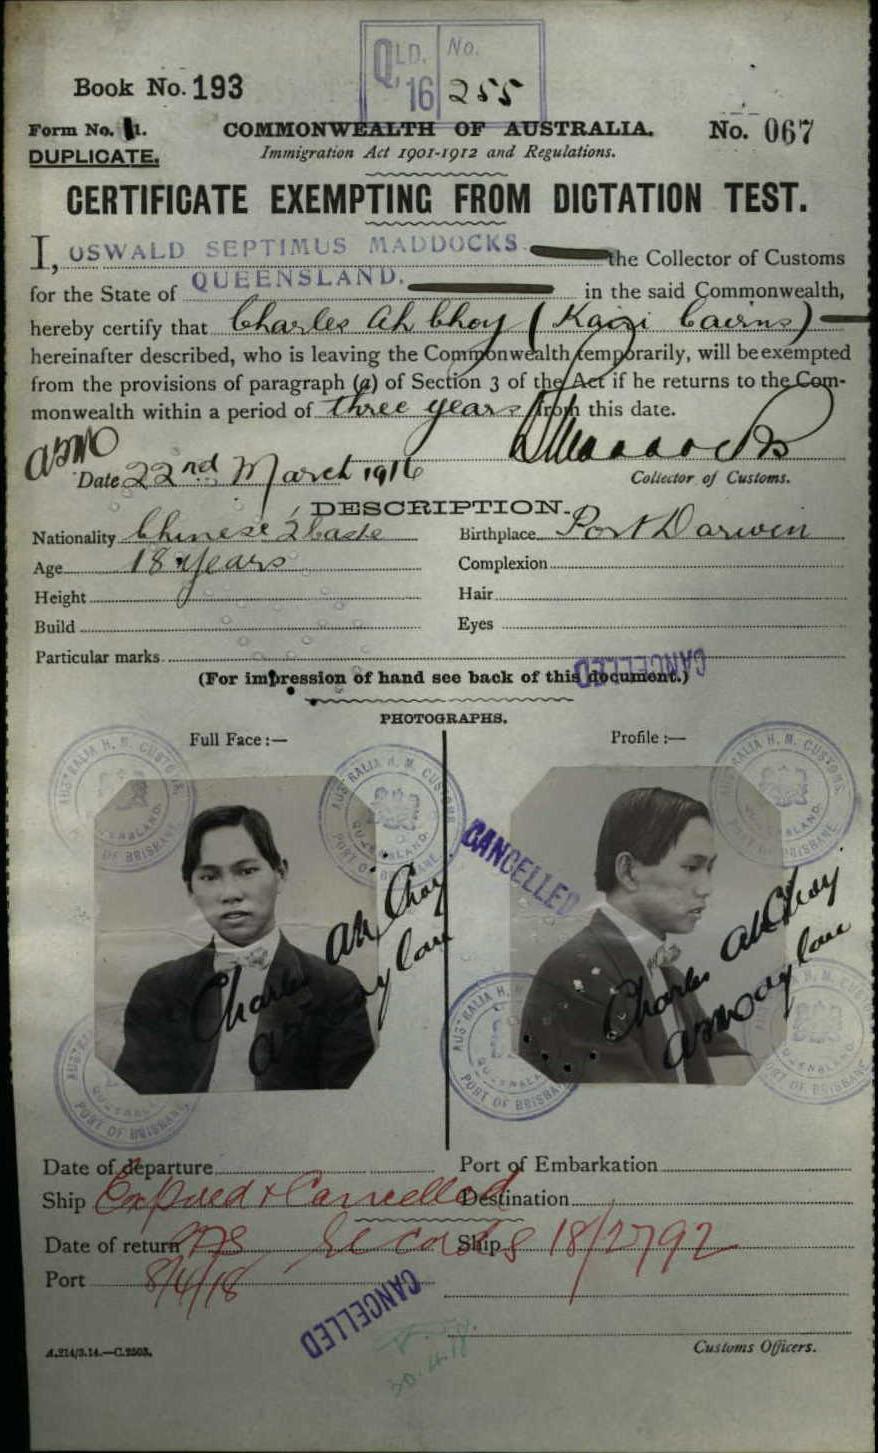 QLD. No.
'16 255
Book No. 193
Form No. 1.
COMMONWEALTH OF AUSTRALIA.
No. 067
DUPLICATE.
Immigration Act 1901-1912 and Regulations.
CERTIFICATE EXEMPTING FROM DICTATION TEST.
I, OSWALD SEPTIMUS MADDOCKS the Collector of Customs
for the State of QUEENSLAND. in the said Commonwealth,
hereby certify that Charles Ah Choy ( Cairns)
hereinafter described, who is leaving the Commonwealth temporarily, will be exempted
from the provisions of paragraph (a) of Section 3 of the Act if he returns to the Com-
monwealth within a period of three years from this date.
OSMaddocks
Date 22nd March 1916
Collector of Customs.
DESCRIPTION.
Nationality Chinese ½ caste Birthplace Port Darwin
Age 18 years Complexion
Height Hair
Build Eyes
Particular marks.
CANCELLED
(For impression of hand see back of this document.)
PHOTOGRAPHS.
Full Face :— Profile :—
AUSTRALIA H. M. CUSTOMS. QUEENSLAND. PORT OF BRISBANE
AUSTRALIA H. M. CUSTOMS. QUEENSLAND. PORT OF BRISBANE
AUSTRALIA H. M. CUSTOMS. QUEENSLAND. PORT OF BRISBANE
CANCELLED
Charles Ah Choy
Charles Ah Choy
AUSTRALIA H. M. QUEENSLAND. PORT OF BRISBANE
AUSTRALIA H. M. QUEENSLAND. PORT OF BRISBANE
Date of departure Port of Embarkation
Ship Expired & Cancelled Destination
Date of return Ship 18/2792
Port 8/4/18
CANCELLED
30.4.18
A.214/3.14.—C.2503.
Customs Officers.